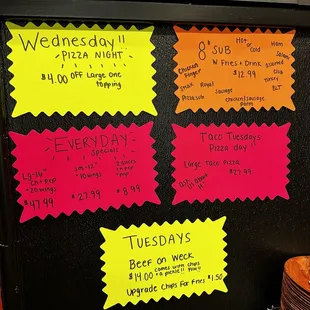 Wednesday!!
PIZZA NIGHT
$4.00 OFF Large One
topping
8" SUB
Hot
or
Cold
W Fries + Drink
$12.99
Chicken
Finger
Royal
Sausage
Pizza sub
Chicken/Sausage
Parm
Ham
Salami
Assorted
Club
Turkey
BLT
EVERYDAY
Specials
Lg-16"
Ch + Pep
20 wings
$47.99
Sm-12"
10 wings
$27.99
2 Slices
$8.99
Taco Tuesdays
Pizza day!!
Large Taco Pizza
$27.99
TUESDAYS
Beef on Weck
$14.00
comes with chips
+ a pickle!!
Upgrade Chips For Fries $1.50